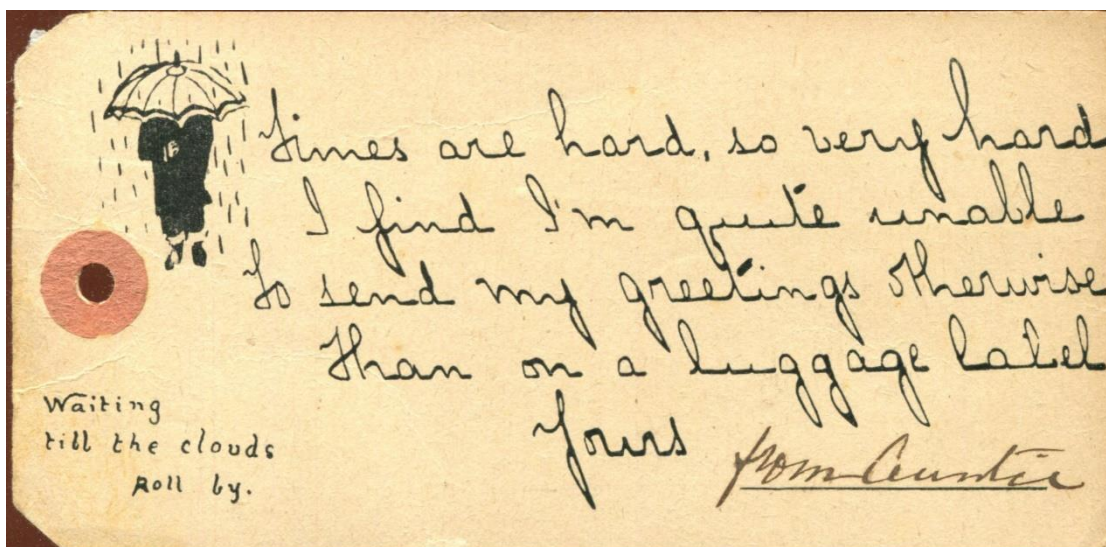 Times are hard, so very hard
I find I'm quite unable
To send my greetings otherwise
Than on a luggage label
Yours
from Auntie
Waiting
till the clouds
Roll by.